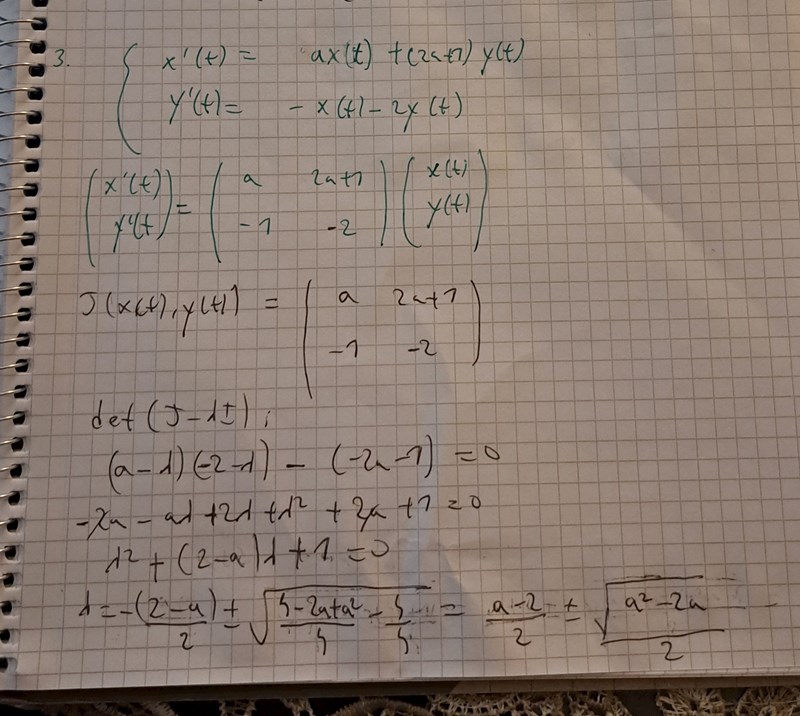 3. { x'(t) = ax(t) + (2a+1) y(t)
y'(t) = - x(t) - 2y(t)
( x'(t) y'(t ) = ( a 2a+1 -1 -2 ) ( x(t) y(t) )
J(x(t), y(t)) = ( a 2a+1 -1 -2 )
det (J-λI):
(a-λ)(-2-λ) - (-2a-1) = 0
-2a - aλ + 2λ + λ² + 2a + 1 = 0
λ² + (2-a)λ + 1 = 0
λ = -(2-a)/2 ± √((4-2a+a²)/4 - 4/4) = (a-2)/2 ± √(a²-2a)/2